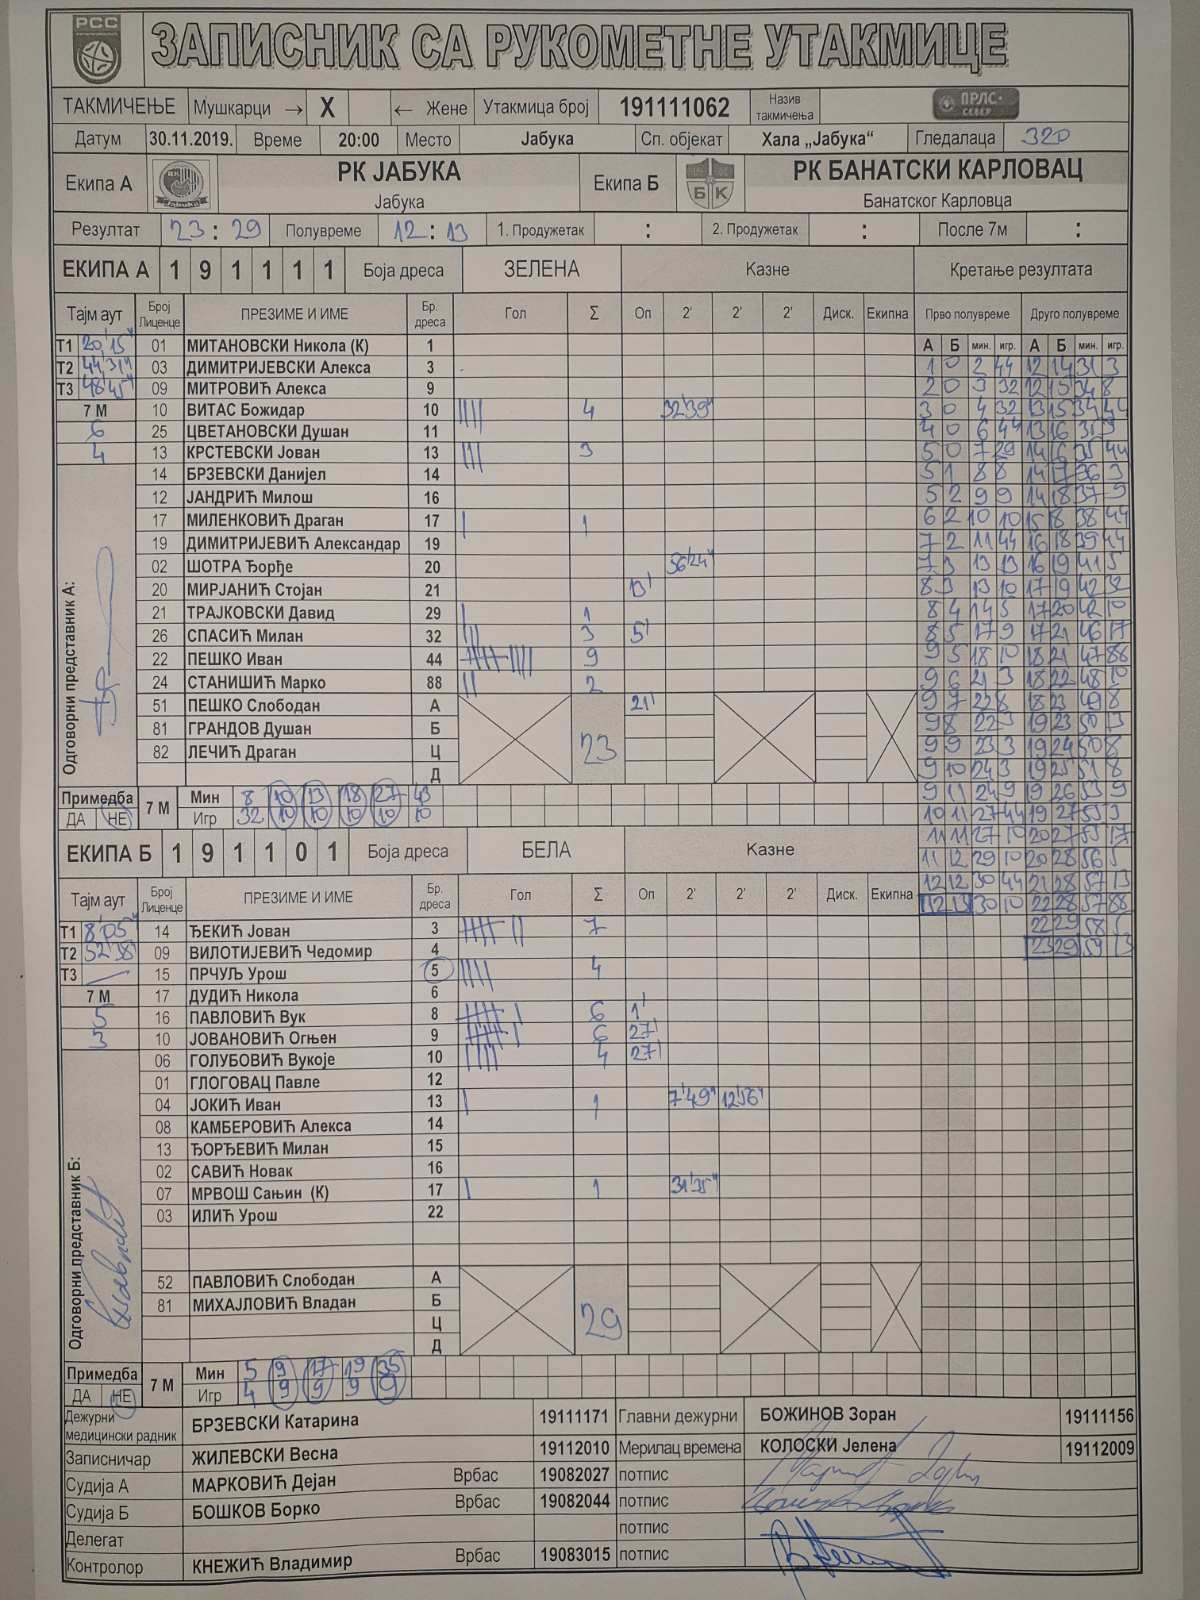 РСС
ЗАПИСНИК СА РУКОМЕТНЕ УТАКМИЦЕ
ТАКМИЧЕЊЕ Мушкарци → X ← Жене Утакмица број 191111062 Назив такмичења ПРЛС- СЕВЕР
Датум 30.11.2019. Време 20:00 Место Јабука Сп. објекат Хала „Јабука“ Гледалаца 320
Екипа А РК ЈАБУКА Јабука Екипа Б БК РК БАНАТСКИ КАРЛОВАЦ Банатског Карловца
Резултат 23 : 29 Полувреме 12 : 13 1. Продужетак : 2. Продужетак : После 7м :
ЕКИПА А 1 9 1 1 1 1 Боја дреса ЗЕЛЕНА Казне Кретање резултата
Тајм аут Број Лиценце ПРЕЗИМЕ И ИМЕ Бр. дреса Гол Σ Оп 2' 2' 2' Диск. Екипна Прво полувреме Друго полувреме
Т1 20'15" 01 МИТАНОВСКИ Никола (К) 1 А Б мин. игр. А Б мин. игр.
Т2 44'31" 03 ДИМИТРИЈЕВСКИ Алекса 3 1 0 2 44 12 14 31 3
Т3 48'45" 09 МИТРОВИЋ Алекса 9 2 0 3 32 12 15 34 8
7 М 10 ВИТАС Божидар 10 |||| 4 32'39" 3 0 4 32 13 15 34 44
6 25 ЦВЕТАНОВСКИ Душан 11 4 0 6 44 13 16 35 9
4 13 КРСТЕВСКИ Јован 13 ||| 3 5 0 7 29 14 16 35 44
14 БРЗЕВСКИ Данијел 14 5 1 8 8 14 17 36 3
12 ЈАНДРИЋ Милош 16 5 2 9 9 14 18 37 9
17 МИЛЕНКОВИЋ Драган 17 | 1 6 2 10 10 15 18 38 44
19 ДИМИТРИЈЕВИЋ Александар 19 7 2 11 44 16 18 39 44
02 ШОТРА Ђорђе 20 56'24" 7 3 13 13 16 19 41 5
20 МИРЈАНИЋ Стојан 21 13' 8 3 13 10 17 19 42 32
21 ТРАЈКОВСКИ Давид 29 | 1 8 4 14 5 17 20 42 10
26 СПАСИЋ Милан 32 ||| 3 5' 8 5 17 9 17 21 46 17
22 ПЕШКО Иван 44 9 9 5 18 10 18 21 47 88
24 СТАНИШИЋ Марко 88 || 2 9 6 21 3 18 22 48 10
51 ПЕШКО Слободан А 21' 9 7 22 8 18 23 49 8
81 ГРАНДОВ Душан Б 23 9 8 22 3 19 23 50 13
82 ЛЕЧИЋ Драган Ц 9 9 23 3 19 24 50 8
Д 9 10 24 3 19 25 51 8
Одговорни представник А:
Примедба 7 М Мин 8 10 13 18 27 43 9 11 24 9 19 26 53 9
ДА НЕ Игр 32 10 10 10 10 10 10 11 27 44 19 27 55 3
ЕКИПА Б 1 9 1 1 0 1 Боја дреса БЕЛА Казне 11 11 27 10 20 27 55 17
11 12 29 10 20 28 56 5
Тајм аут Број Лиценце ПРЕЗИМЕ И ИМЕ Бр. дреса Гол Σ Оп 2' 2' 2' Диск. Екипна 12 12 30 44 21 28 57 13
12 13 30 10 22 28 57 88
Т1 8'05" 14 ЂЕКИЋ Јован 3 7 22 29 58
Т2 52'38" 09 ВИЛОТИЈЕВИЋ Чедомир 4 23 29 59 13
Т3 15 ПРЧУЉ Урош 5 |||| 4
7 М 17 ДУДИЋ Никола 6
5 16 ПАВЛОВИЋ Вук 8 6 1'
3 10 ЈОВАНОВИЋ Огњен 9 6 27'
06 ГОЛУБОВИЋ Вукоје 10 |||| 4 27'
01 ГЛОГОВАЦ Павле 12
04 ЈОКИЋ Иван 13 | 1 7'49" 12'56"
08 КАМБЕРОВИЋ Алекса 14
13 ЂОРЂЕВИЋ Милан 15
02 САВИЋ Новак 16
07 МРВОШ Сањин (К) 17 | 1 31'35"
03 ИЛИЋ Урош 22
52 ПАВЛОВИЋ Слободан А
81 МИХАЈЛОВИЋ Владан Б 29
Ц
Д
Одговорни представник Б:
Примедба 7 М Мин 5 9 17 19 35
ДА НЕ Игр 4 9 9 9 9
Дежурни медицински радник БРЗЕВСКИ Катарина 19111171 Главни дежурни БОЖИНОВ Зоран 19111156
Записничар ЖИЛЕВСКИ Весна 19112010 Мерилац времена КОЛОСКИ Јелена 19112009
Судија А МАРКОВИЋ Дејан Врбас 19082027 потпис
Судија Б БОШКОВ Борко Врбас 19082044 потпис
Делегат потпис
Контролор КНЕЖИЋ Владимир Врбас 19083015 потпис